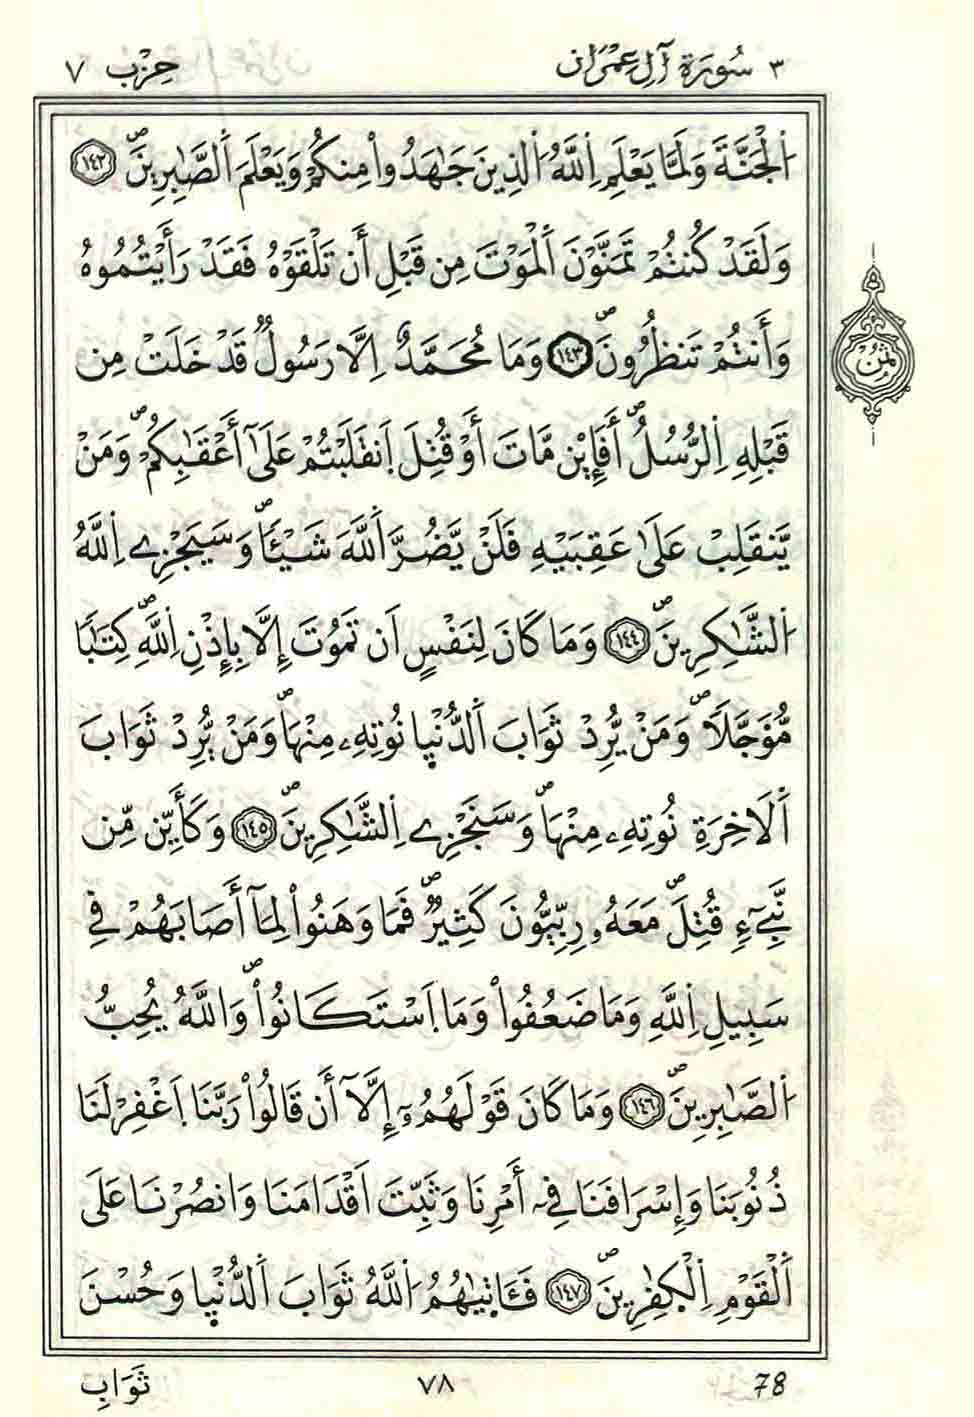 ٣ سُورَةِ آلِ عِمْرَان حِزْب ٧
اَ۬لْجَنَّةَ وَلَمَّا يَعْلَمِ اِ۬للَّهُ اُ۬لذِينَ جَٰهَدُواْ مِنكُمْ وَيَعْلَمَ اَ۬لصَّٰبِرِينَۖ ١٤٢
وَلَقَدْ كُنتُمْ تَمَنَّوْنَ اَ۬لْمَوْتَ مِن قَبْلِ أَن تَلْقَوْهُ فَقَدْ رَأَيْتُمُوهُ
وَأَنتُمْ تَنظُرُونَۖ ١٤٣ وَمَا مُحَمَّدٌ اِلَّا رَسُولٌ قَدْ خَلَتْ مِن
قَبْلِهِ اِ۬لرُّسُلُۖ أَفَإِيْن مَّاتَ أَوْ قُتِلَ اَ۪نقَلَبْتُمْ عَلَىٰٓ أَعْقَٰبِكُمْۖ وَمَنْ
يَّنقَلِبْ عَلَىٰ عَقِبَيْهِ فَلَنْ يَّضُرَّ اَ۬للَّهَ شَيْـٔاًۖ وَسَيَجْزِے اِ۬للَّهُ
اُ۬لشَّٰكِرِينَۖ ١٤٤ وَمَا كَانَ لِنَفْسٍ اَن تَمُوتَ إِلَّا بِإِذْنِ اِ۬للَّهِۖ كِتَٰباً
مُّؤَجَّلاًۖ وَمَنْ يُّرِدْ ثَوَابَ اَ۬لدُّنْي۪ا نُوتِهِۦ مِنْهَاۖ وَمَنْ يُّرِدْ ثَوَابَ
اَ۬لَاخِرَةِ نُوتِهِۦ مِنْهَاۖ وَسَنَجْزِے اِ۬لشَّٰكِرِينَۖ ١٤٥ وَكَأَيِّن مِّن
نَّبِےٓءٍ قُتِلَۖ مَعَهُۥ رِبِّيُّونَ كَثِيرٌۖ فَمَا وَهَنُواْ لِمَآ أَصَابَهُمْ فِے
سَبِيلِ اِ۬للَّهِ وَمَا ضَعُفُواْ وَمَا اَ۪سْتَكَانُواْۖ وَاللَّهُ يُحِبُّ
اُ۬لصَّٰبِرِينَۖ ١٤٦ وَمَا كَانَ قَوْلَهُمُۥٓ إِلَّآ أَن قَالُواْ رَبَّنَا اَ۪غْفِرْ لَنَا
ذُنُوبَنَا وَإِسْرَافَنَا فِےٓ أَمْرِنَا وَثَبِّتَ اَقْدَامَنَا وَانصُرْنَا عَلَى
اَ۬لْقَوْمِ اِ۬لْكٰ۪فِرِينَۖ ١٤٧ فَـَٔات۪يٰهُمُ اُ۬للَّهُ ثَوَابَ اَ۬لدُّنْي۪ا وَحُسْنَ
ثُمُن
ثَوَابِ ٧٨ 78